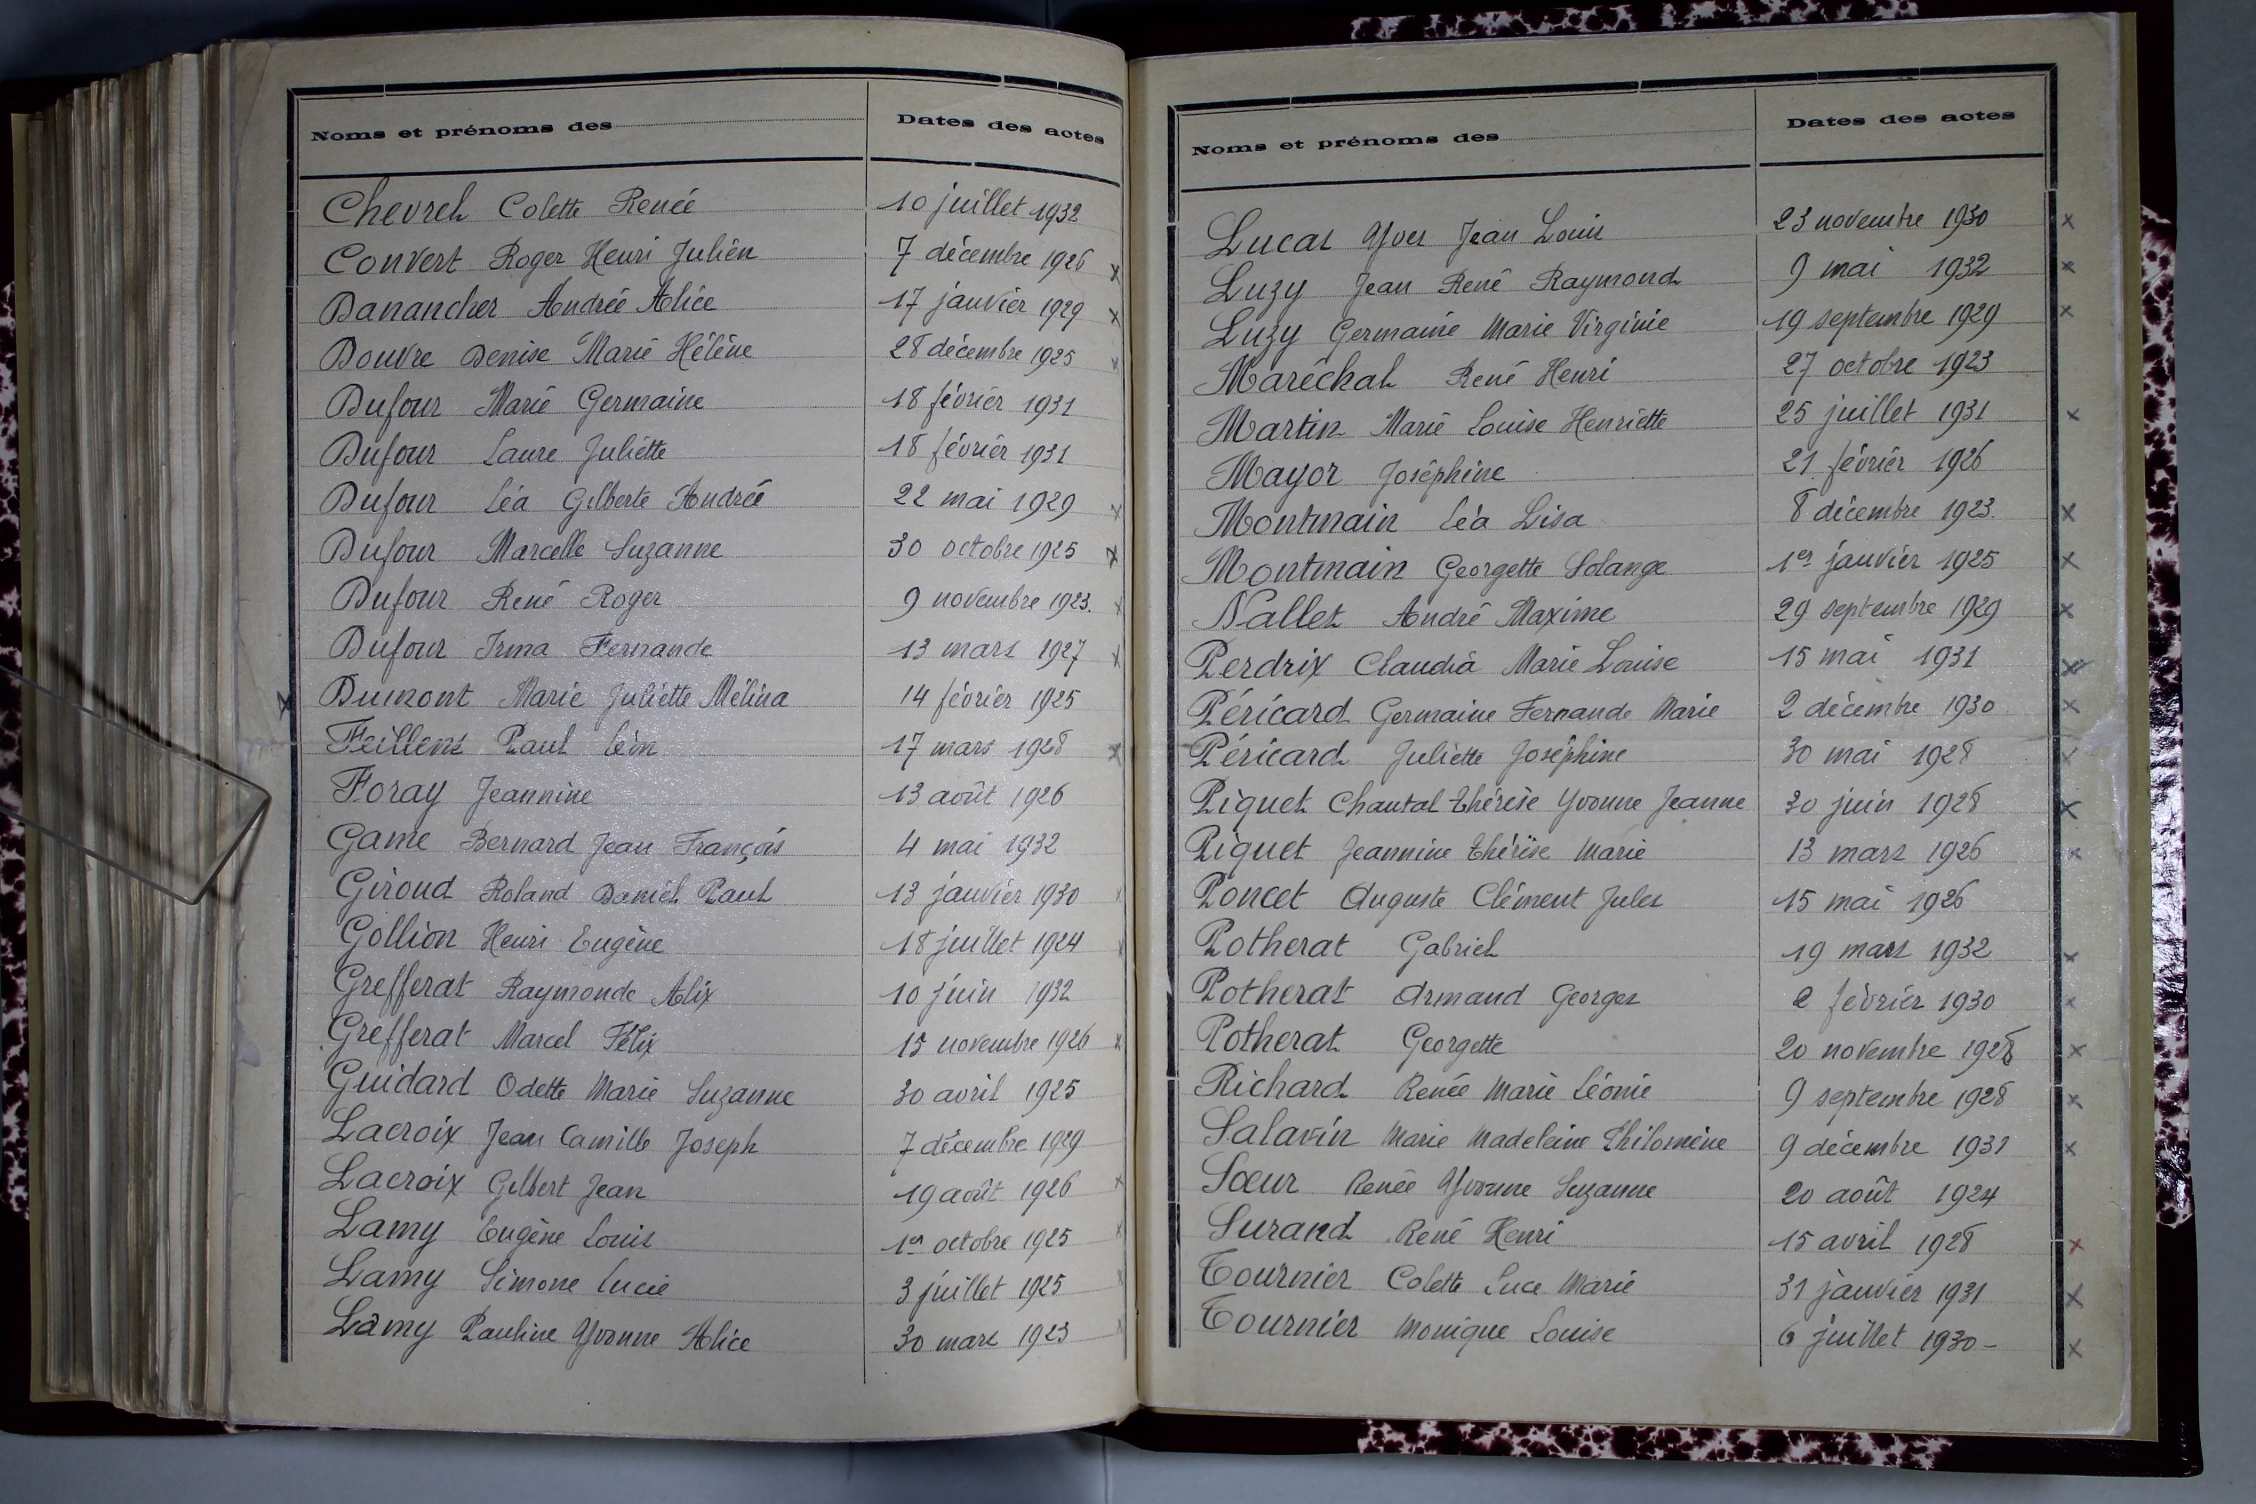 Noms et prénoms des
Dates des actes
Chevrel Colette Renée 10 juillet 1932
Convert Roger Henri Julien 7 décembre 1926 x
Danancher Andrée Alice 17 janvier 1929 x
Douvre Denise Marie Hélène 28 décembre 1925 x
Dufour Marie Germaine 18 février 1931
Dufour Laure Juliette 18 février 1931
Dufour Léa Gilberte Andrée 22 mai 1929 x
Dufour Marcelle Suzanne 30 octobre 1925 x
Dufour René Roger 9 novembre 1923. x
Dufour Irma Fernande 13 mars 1927 x
x Dumont Marie Juliette Mélina 14 février 1925
Feillens Paul Léon 17 mars 1928 x
Foray Jeannine 13 août 1926
Game Bernard Jean François 4 mai 1932
Giroud Roland Daniel Paul 13 janvier 1930 x
Gollion Henri Eugène 18 juillet 1924 x
Grefferat Raymonde Alix 10 juin 1932
Grefferat Marcel Félix 15 novembre 1926 x
Guidard Odette Marie Suzanne 30 avril 1925
Lacroix Jean Camille Joseph 7 décembre 1929
Lacroix Gilbert Jean 19 août 1926 x
Lamy Eugène Louis 1er octobre 1925 x
Lamy Simone Lucie 3 juillet 1925 x
Lamy Pauline Yvonne Alice 30 mars 1923 x
Noms et prénoms des
Dates des actes
Lucas Yves Jean Louis 23 novembre 1930 x
Luzy Jean René Raymond 9 mai 1932 x
Luzy Germaine Marie Virginie 19 septembre 1929 x
Maréchal René Henri 27 octobre 1923
Martin Marie Louise Henriette 25 juillet 1931 x
Mayor Joséphine 21 février 1926
Montmain Léa Lisa 8 décembre 1923. x
Montmain Georgette Solange 1er janvier 1925 x
Nallet André Maxime 29 septembre 1929 x
Perdrix Claudia Marie Louise 15 mai 1931 x
Péricard Germaine Fernande Marie 2 décembre 1930 x
Péricard Juliette Joséphine 30 mai 1928 x
Piquet Chantal Thérèse Yvonne Jeanne 30 juin 1928 x
Piquet Jeannine Thérèse Marie 13 mars 1926 x
Poncet Auguste Clément Jules 15 mai 1926
Potherat Gabriel 19 mars 1932 x
Potherat Armand Georges 2 février 1930 x
Potherat Georgette 20 novembre 1928 x
Richard Renée Marie Léonie 9 septembre 1928 x
Salavin Marie Madeleine Philomène 9 décembre 1931 x
Sœur Renée Yvonne Suzanne 20 août 1924
Surand René Henri 15 avril 1928 x
Tournier Colette Luce Marie 31 janvier 1931 x
Tournier Monique Louise 6 juillet 1930 - x